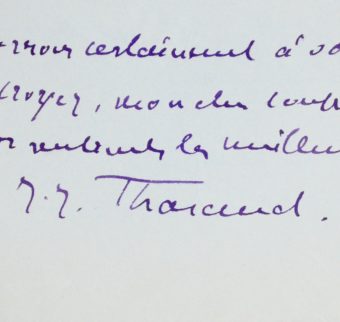 certainement à
croyez, mon cher
sentiments les meilleu
J. J. Tharaud.